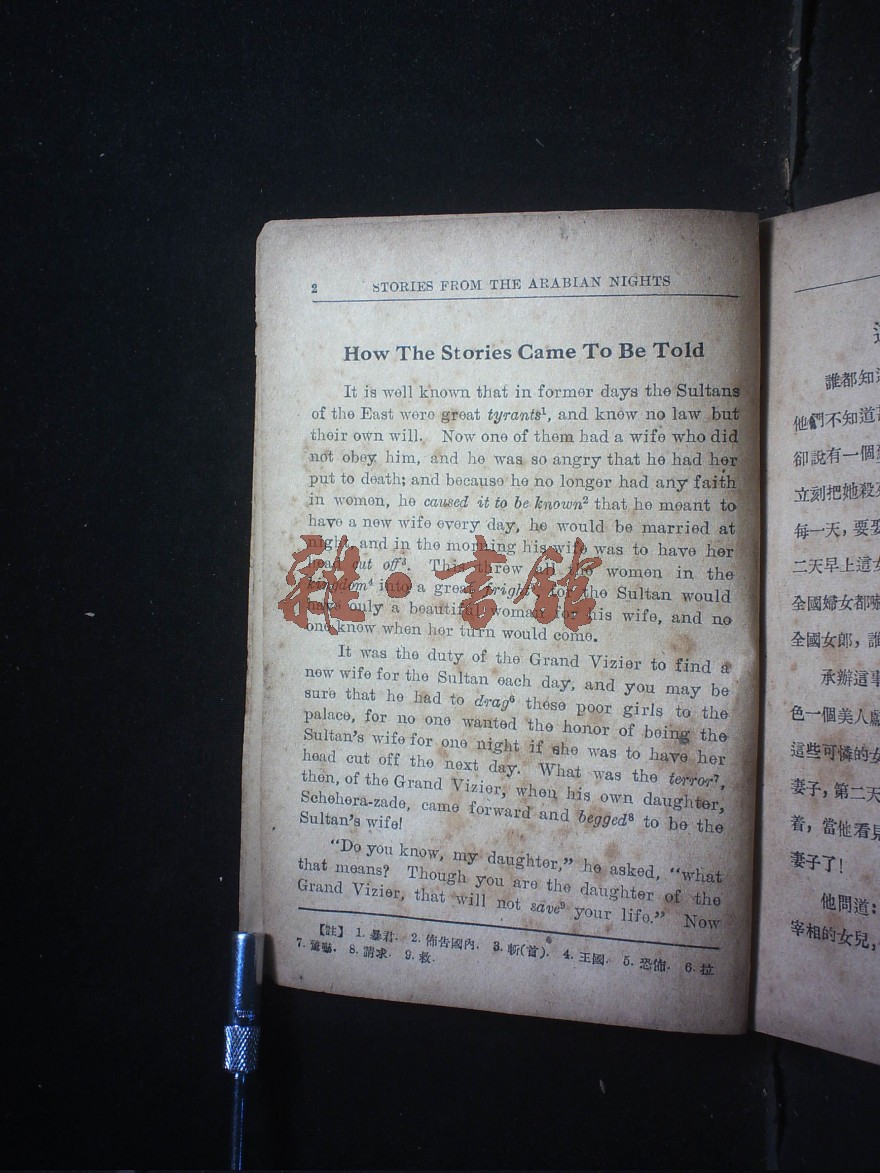 2 STORIES FROM THE ARABIAN NIGHTS
How The Stories Came To Be Told
It is well known that in former days the Sultans
of the East were great tyrants¹, and knew no law but
their own will. Now one of them had a wife who did
not obey him, and he was so angry that he had her
put to death; and because he no longer had any faith
in women, he caused it to be known² that he meant to
have a new wife every day, he would be married at
night, and in the morning his wife was to have her
head cut off³. This threw all the women in the
kingdom⁴ into a great fright⁵ for the Sultan would
have only a beautiful woman for his wife, and no
one knew when her turn would come.
It was the duty of the Grand Vizier to find a
new wife for the Sultan each day, and you may be
sure that he had to drag⁶ these poor girls to the
palace, for no one wanted the honor of being the
Sultan's wife for one night if she was to have her
head cut off the next day. What was the terror⁷,
then, of the Grand Vizier, when his own daughter,
Schehera-zade, came forward and begged⁸ to be the
Sultan's wife!
"Do you know, my daughter," he asked, "what
that means? Though you are the daughter of the
Grand Vizier, that will not save⁹ your life." Now
【註】 1. 暴君. 2. 佈告國內. 3. 斬(首). 4. 王國. 5. 恐佈. 6. 拉
7. 驚嚇. 8. 請求. 9. 救.
雜·書館
誰都知
他們不知道
卻說有一個
立刻把她殺
每一天，要
二天早上這
全國婦女都
全國女郎，誰
承辦這事
色一個美人獻
這些可憐的女
妻子，第二天
着，當他看見
妻子了！
他問道：
宰相的女兒，